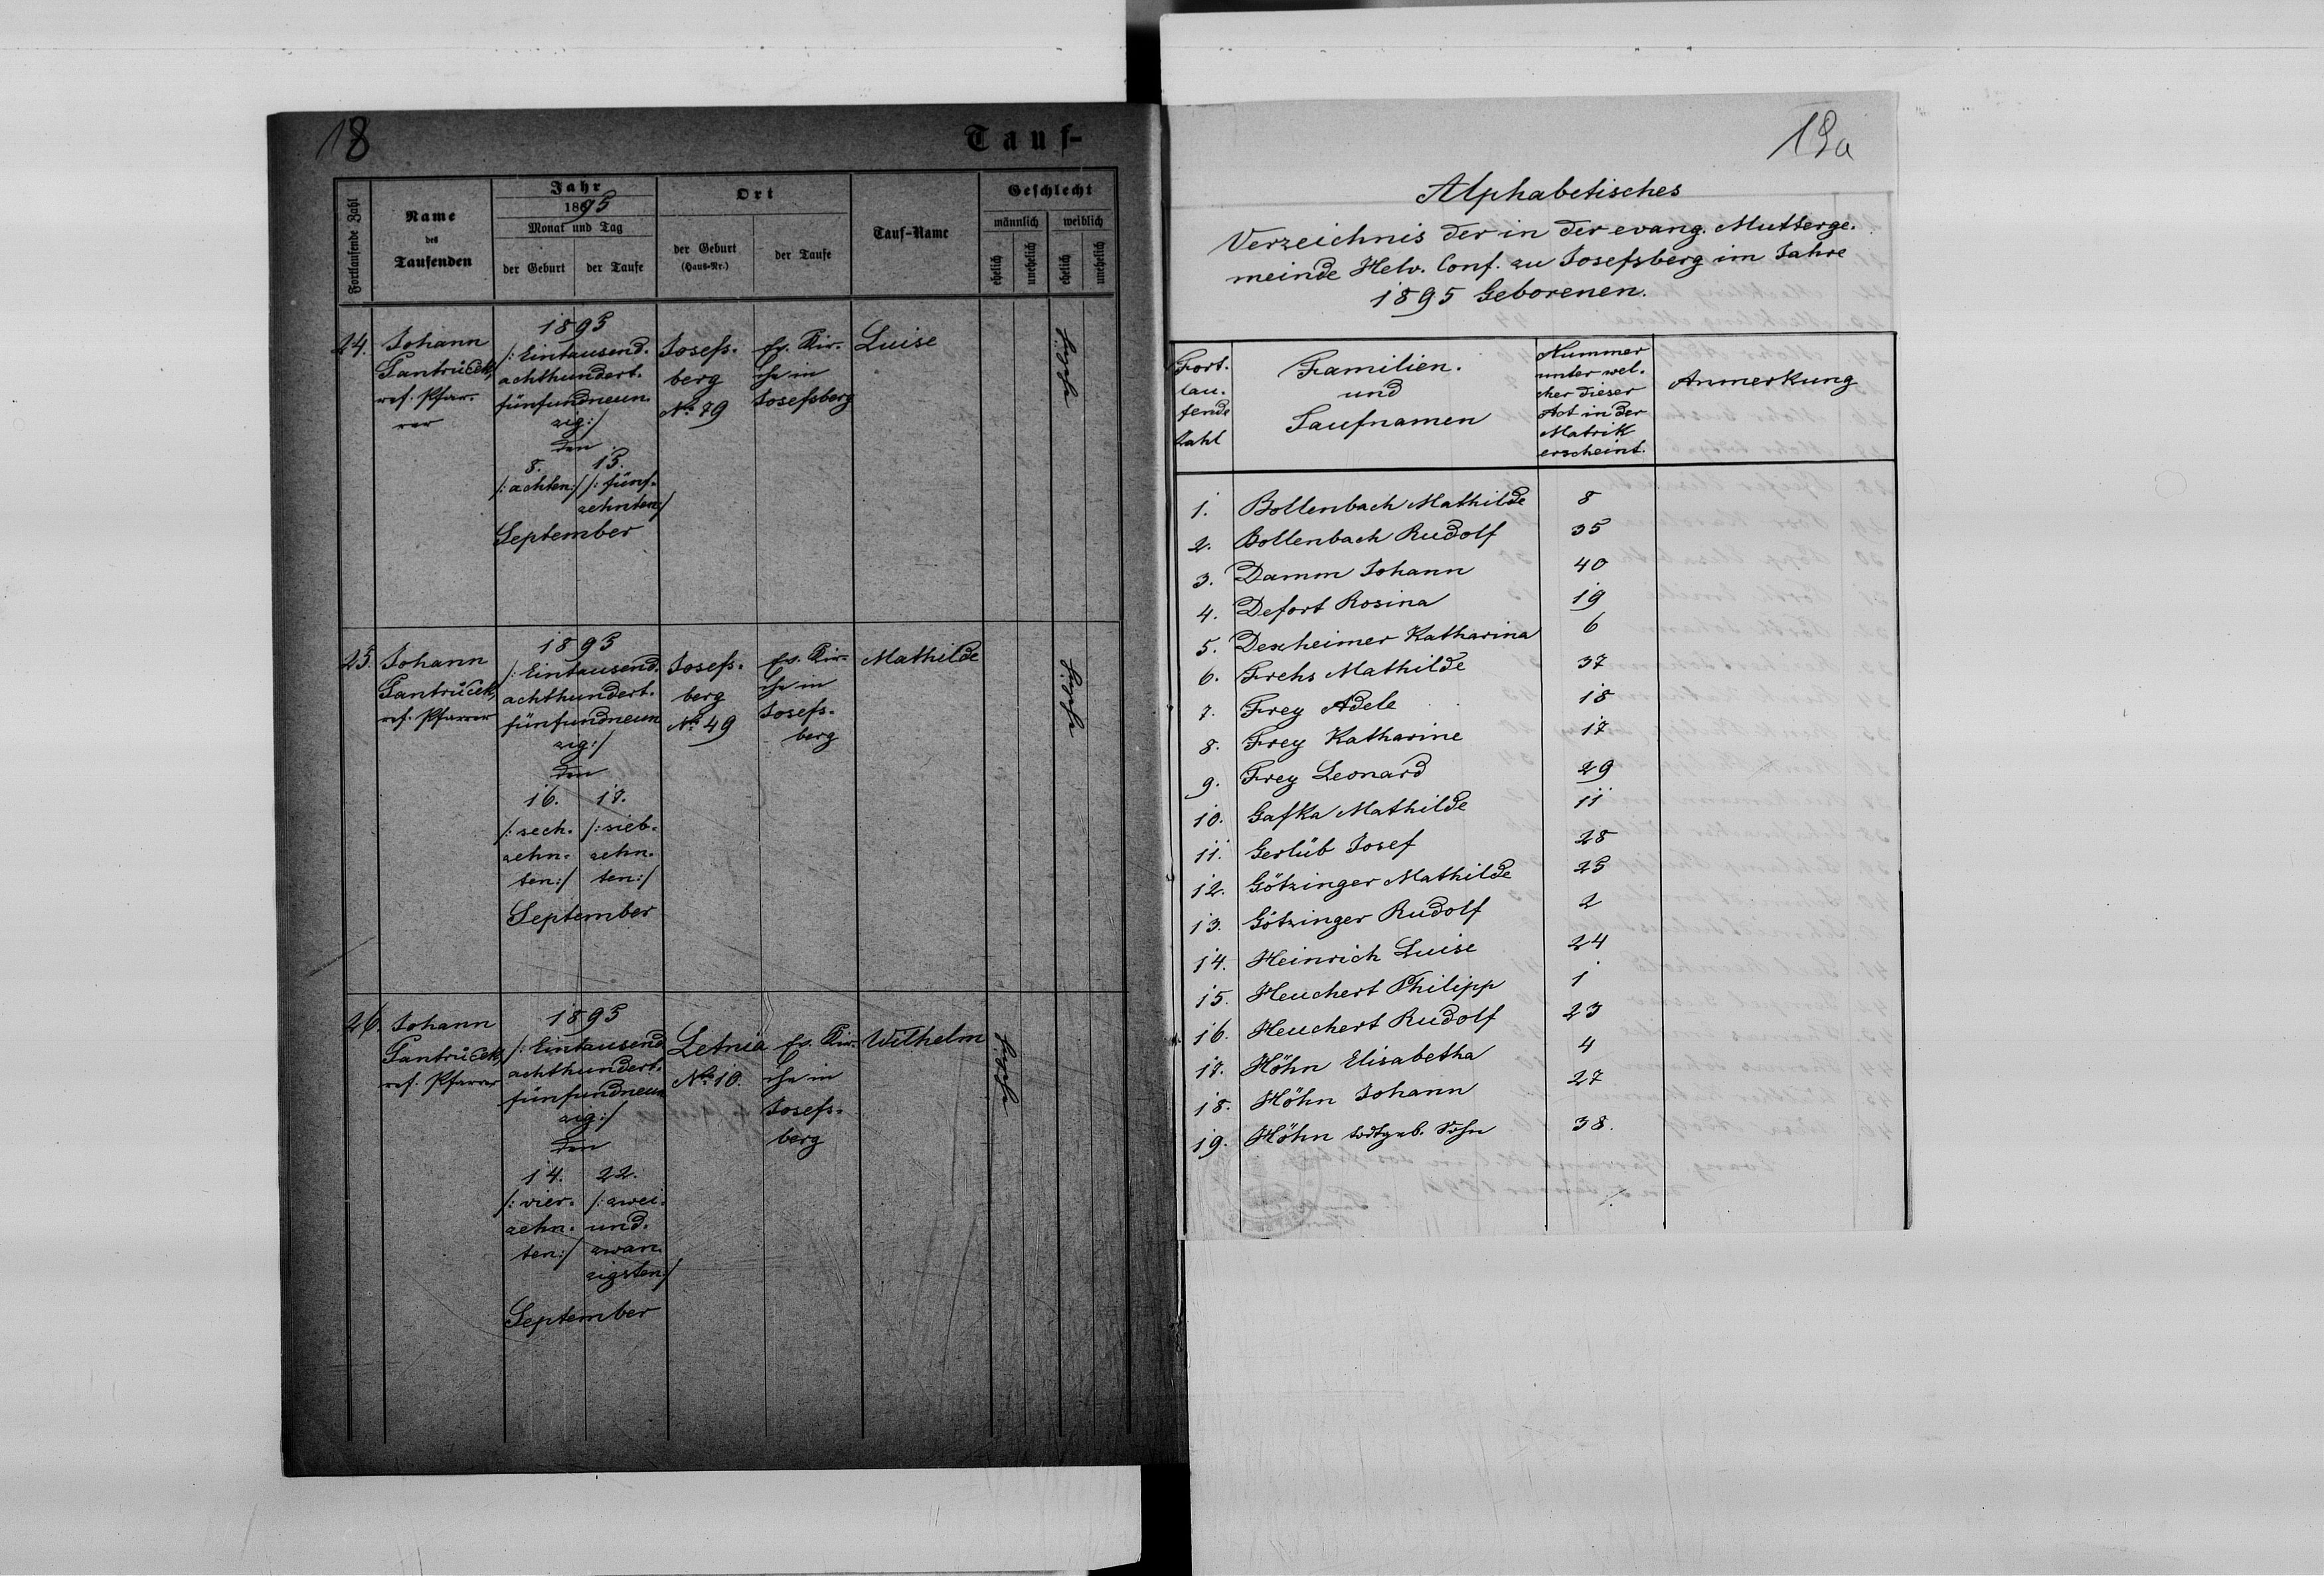 18
Tauf-
Fortlaufende Zahl
Name
des
Taufenden
Jahr
1895
Monat und Tag
der Geburt
der Taufe
Ort
der Geburt
(Haus-Nr.)
der Taufe
Tauf-Name
Geschlecht
männlich
weiblich
ehelich
unehelich
ehelich
unehelich
24.
Johann
Pantrůček,
ref. Pfar-
rer
1895
/: Eintausend.
achthundert.
fünfundneun.
zig:/
den
8. 15.
/: achten:/ /: fünf-
zehnten:/
September
Josefs-
berg
No 79
Ev. Kir-
che in
Josefsberg
Luise
ehelich
25.
Johann
Pantrůček,
ref. Pfarrer
1895
/: Eintausend.
achthundert.
fünfundneun
zig:/
den
16. 17.
/: sech- /: sieb-
zehn- zehn-
ten:/ ten:/
September
Josefs-
berg
No 49
Ev. Kir-
che in
Josefs-
berg
Mathilde
ehelich
26.
Johann
Pantrůček,
ref. Pfarrer
1895
/: Eintausend
achthundert.
fünfundneun
zig:/
den
14. 22.
/: vier- /: zwei-
zehn- und-
ten:/ zwan-
zigsten:/
September
Letnia
No 10.
Ev. Kir-
che in
Josefs-
berg
Wilhelm
ehelich
19a
Alphabetisches
Verzeichnis der in der evang. Mutterge-
meinde Helv. Conf. zu Josefsberg im Jahre
1895 Geborenen.
Fort-
lau-
fende
Zahl
Familien-
und
Taufnamen
Nummer
unter wel-
cher dieser
Act in der
Matrik
erscheint.
Anmerkung
1. Bollenbach Mathilde 8
2. Bollenbach Rudolf 35
3. Damm Johann 40
4. Defort Rosina 19
5. Dexheimer Katharina 6
6. Frehs Mathilde 37
7. Frey Adele 18
8. Frey Katharine 17
9. Frey Leonard 29
10. Gafka Mathilde 11
11. Gerlüb Josef 28
12. Götzinger Mathilde 25
13. Götzinger Rudolf 2
14. Heinrich Luise 24
15. Heuchert Philipp 1
16. Heuchert Rudolf 23
17. Höhn Elisabetha 4
18. Höhn Johann 27
19. Höhn todtgeb. Sohn 38.
./.